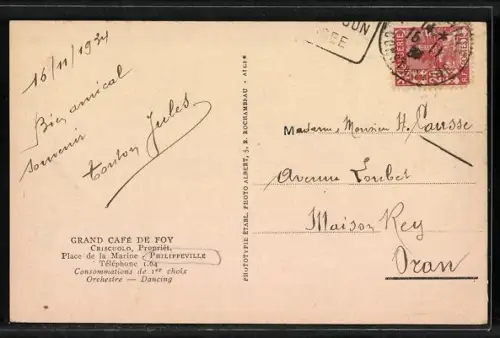 16/11/1934
Bien amical
souvenir
Tonton Jules
GRAND CAFÉ DE FOY
CRISCUOLO, Propriét.
Place de la Marine PHILIPPEVILLE
Téléphone 1.64
Consommations de 1er choix
Orchestre — Dancing
PHOTOTYPIE ÉTABL. PHOTO ALBERT, 5, R. ROCHAMBEAU - ALGER
ALGERIE
RF
Madame, Monsieur H. Causse
Avenue Loubet
Maison Rey
Oran